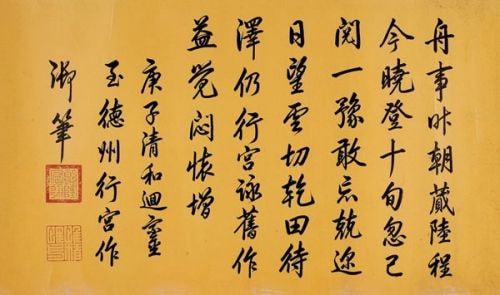 舟事昨朝蕆陸程
今曉登十旬忽已
閱一豫敢忘兢邇
日望雲切乾田待
澤仍行宮詠舊作
益覺悶懷增
庚子清和迴鑾
至德州行宮作
御筆